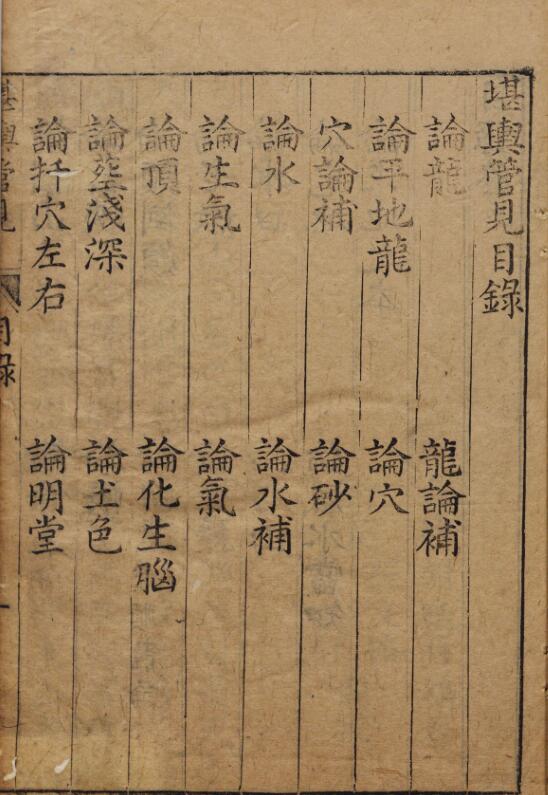 堪輿管見目錄
論龍 龍論補
論平地龍 論穴
穴論補 論砂
論水 論水補
論生氣 論氣
論頂 論化生腦
論塟淺深 論土色
論扦穴左右 論明堂
堪輿管見 目錄